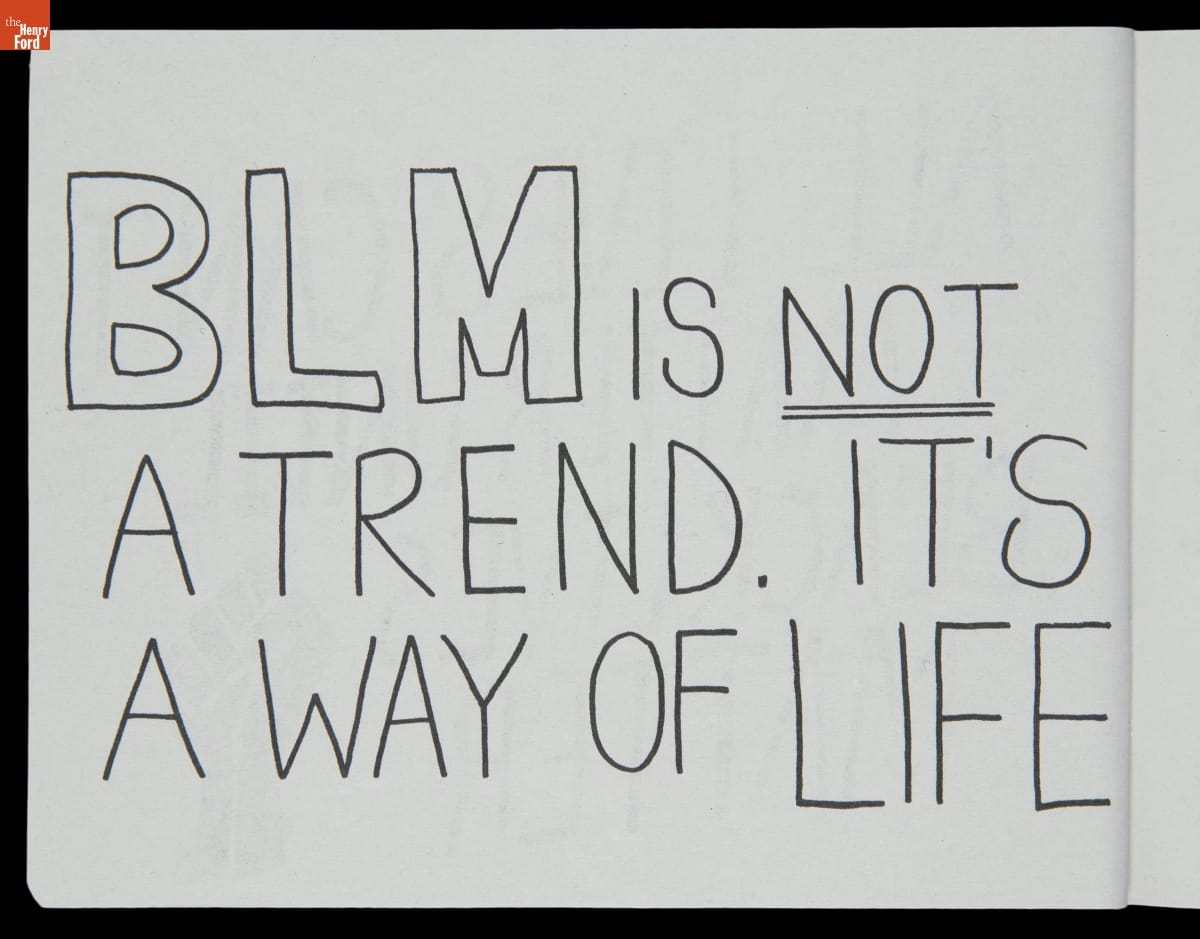 the
Henry
Ford
BLM IS NOT
A TREND. IT'S
A WAY OF LIFE